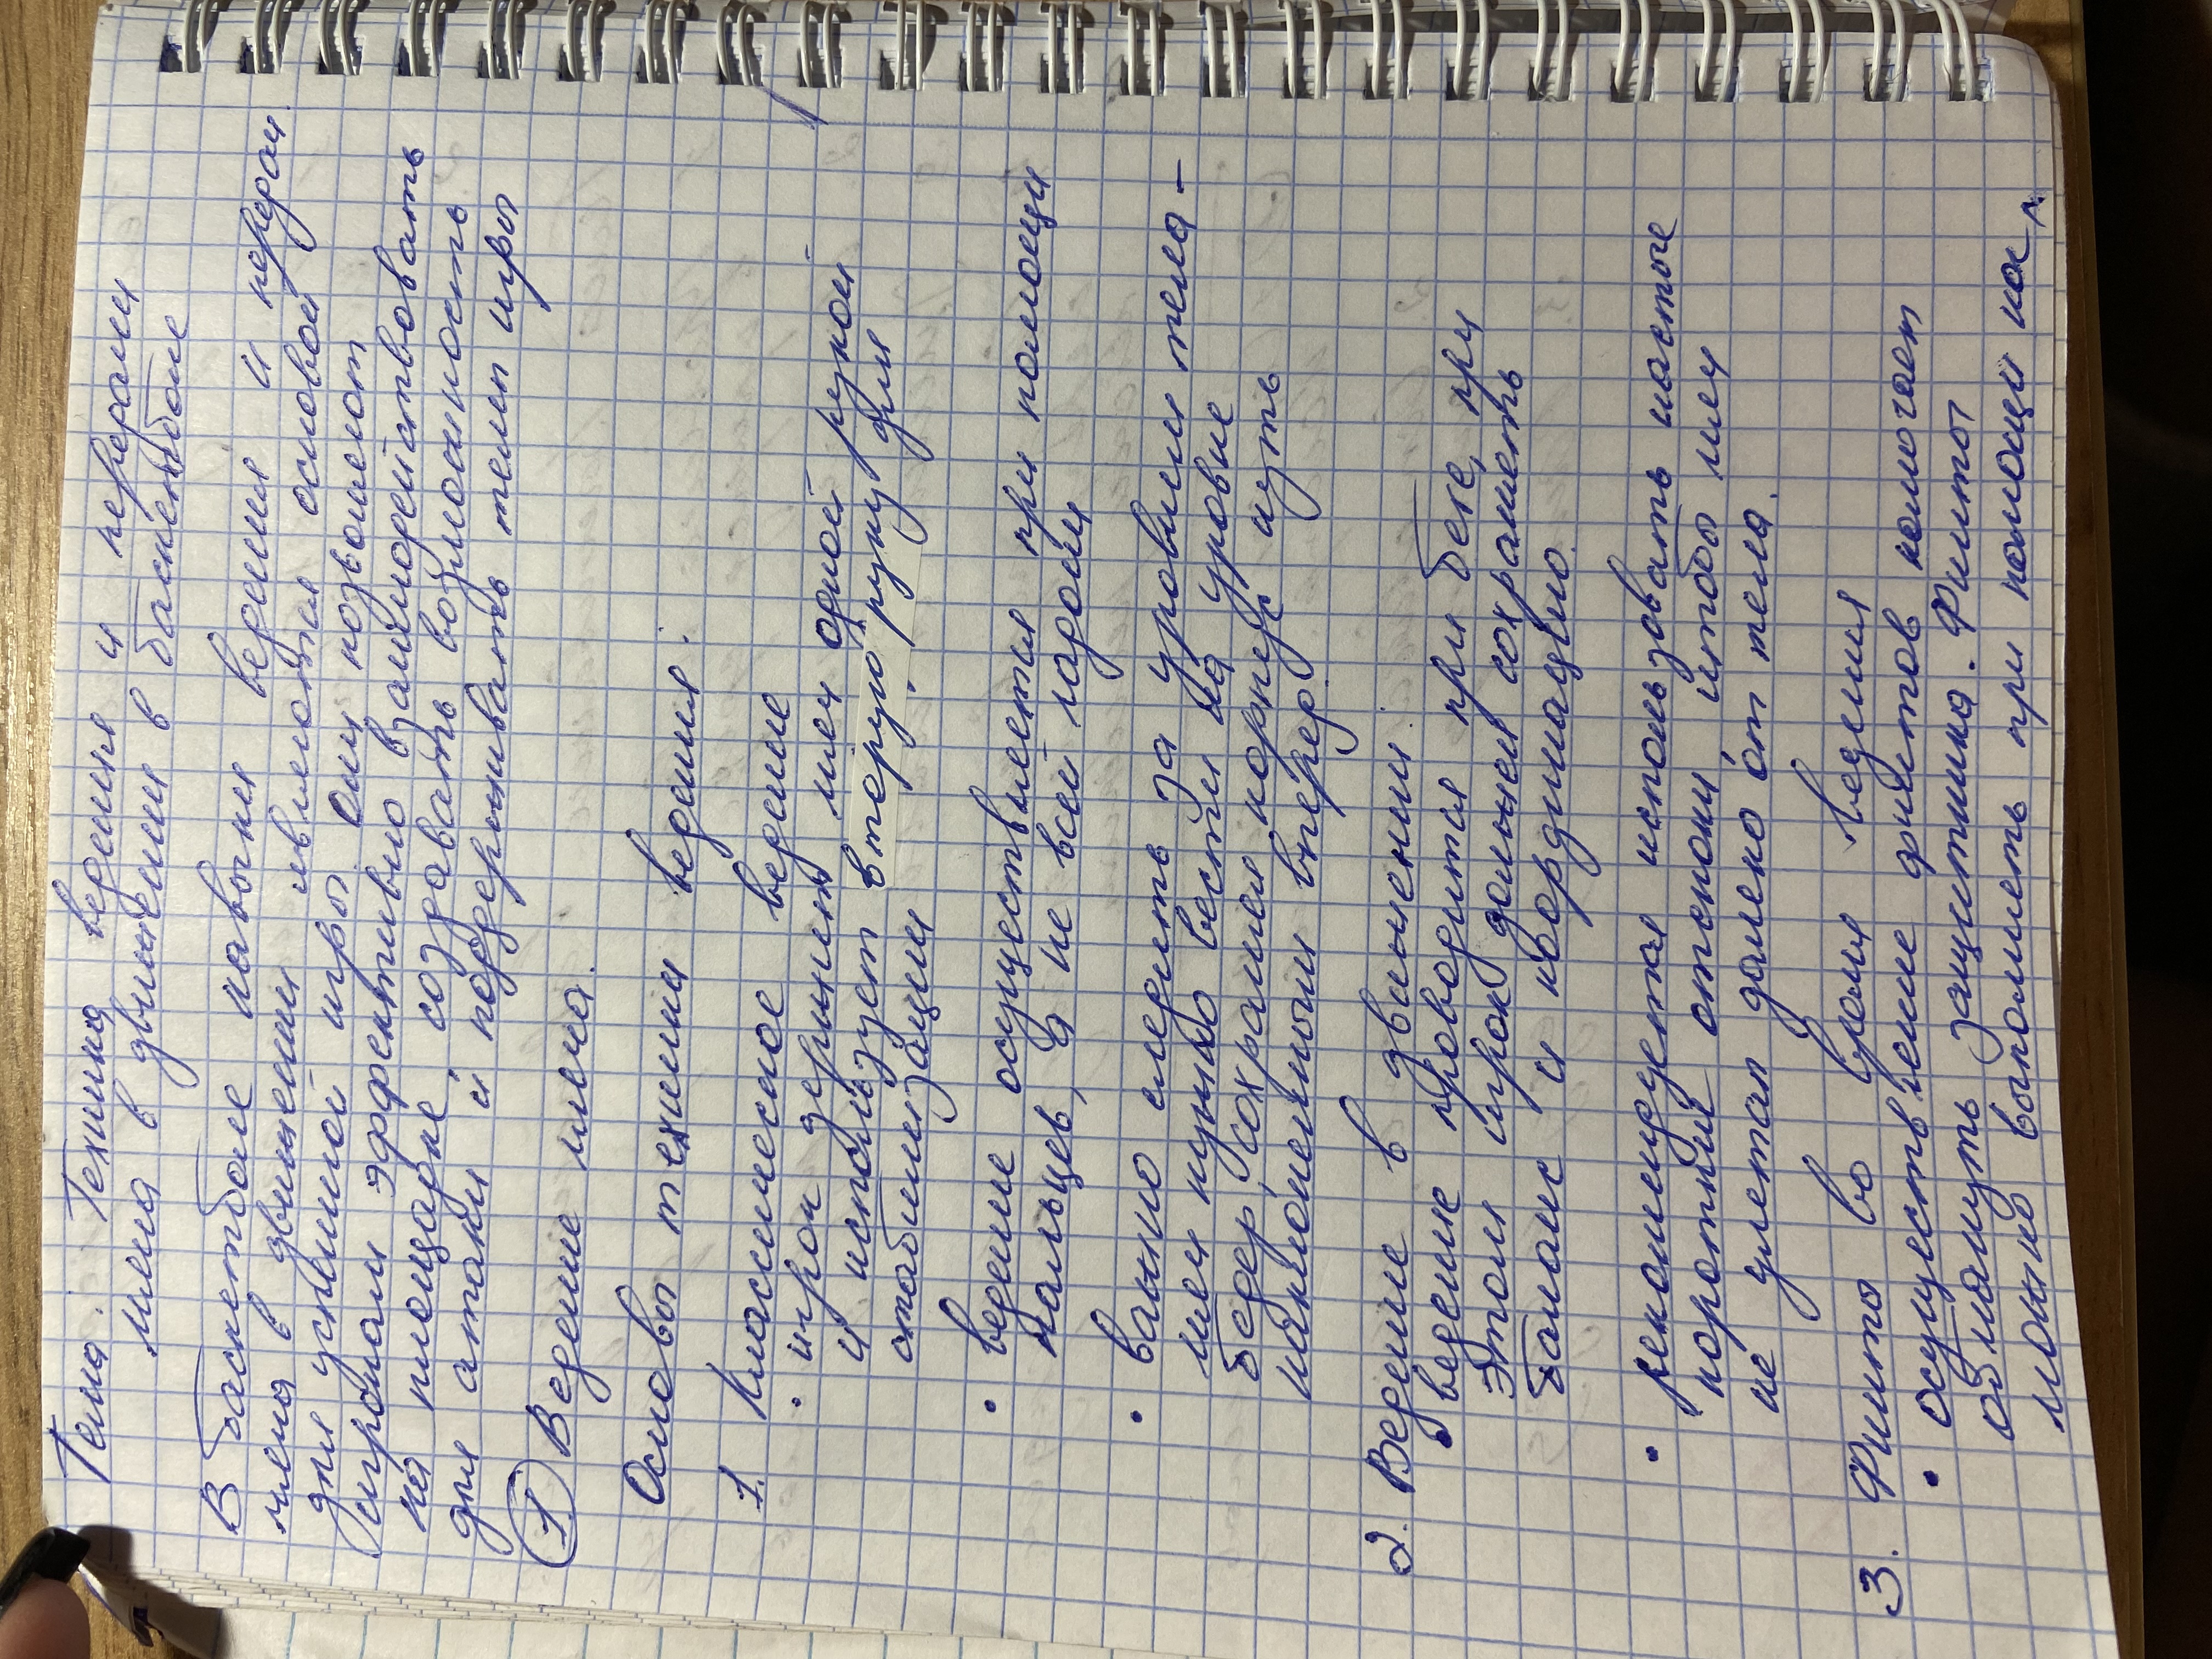 Тема: Техника ведения и передачи
мяча в движении в баскетболе
В баскетболе навыки ведения и передачи
мяча в движении являются основой
для успешной игры. Они позволяют
игрокам эффективно взаимодействовать
на площадке, создавать возможность
для атаки и поддерживать темп игры
1) Ведение мяча.
Основы техники ведения:
1. Классическое ведение
• игрок держит мяч одной рукой
и использует вторую руку для
стабилизации
• ведение осуществляется при помощи
пальцев, а не всей ладони
• важно следить за уровнем тела -
мяч нужно вести на уровне
бедер, сохраняя корпус чуть
наклоненным вперед.
2. Ведение в движении:
• ведение проводится при беге, при
этом игрок должен сохранять
баланс и координацию.
• рекомендуется использовать частые
короткий отскоки чтобы мяч
не улетал далеко от тела.
3. Финты во время ведения
• осуществление финтов помогает
обмануть защитника. Финты
можно выполнять при помощи на